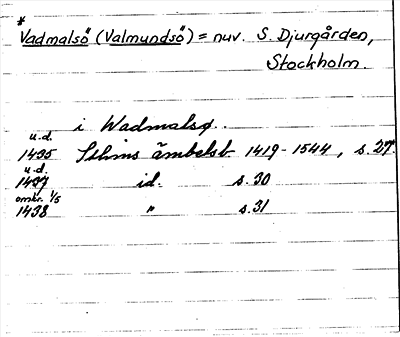 *
Vadmalsö (Valmundsö) = nuv. S. Djurgården,
Stockholm.
i Wadmalsø.
u.d.
1435 Sthms ämbetsb. 1419-1544, s. 27.
u.d.
1437 id. s.30
omkr. 1/5
1438 " s.31